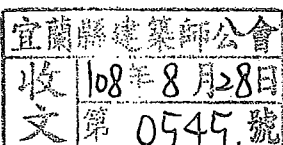 宜蘭縣建築師公會
收文
108年8月28日
第0545.號